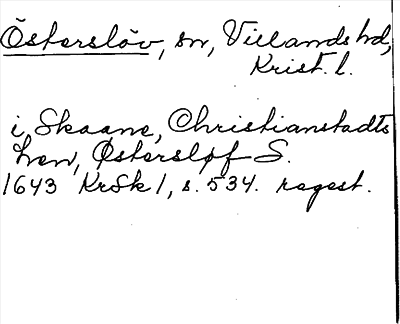 Östersløv, sn, Villands hd,
Krist. l.
i, Skaane, Christianstadts
Len, Østersløf S.
1643 KrSk 1, s. 534. regest.